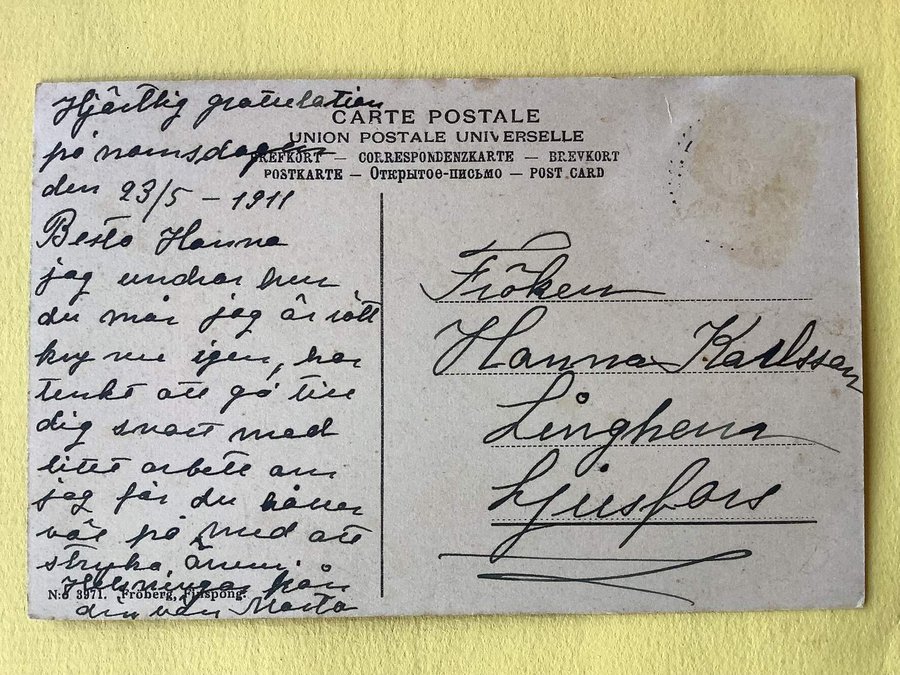 Hjärtlig gratulation
på namsdagen
den 23/5 - 1911
Bästa Hanna
jag undrar hur
du mår jag är rätt
kry nu igen, har
tenkt att gå till
dig snart med
litet arbete om
jag får du håller
väl på med att
stryka ännu
Helsningar från
din vän Marta
N:o 3971. Fröberg, Finspong.
CARTE POSTALE
UNION POSTALE UNIVERSELLE
BREFKORT — CORRESPONDENZKARTE — BREVKORT
POSTKARTE — Открытое-письмо — POST CARD
Fröken
Hanna Karlsson
Linghem
Ljusfors